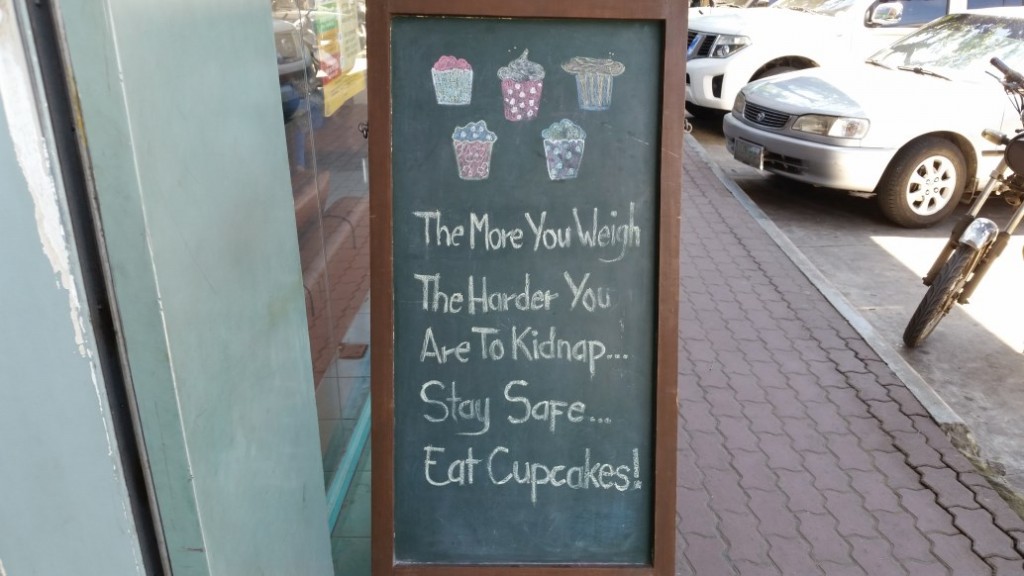 The More You Weigh
The Harder You
Are To Kidnap...
Stay Safe...
Eat Cupcakes!